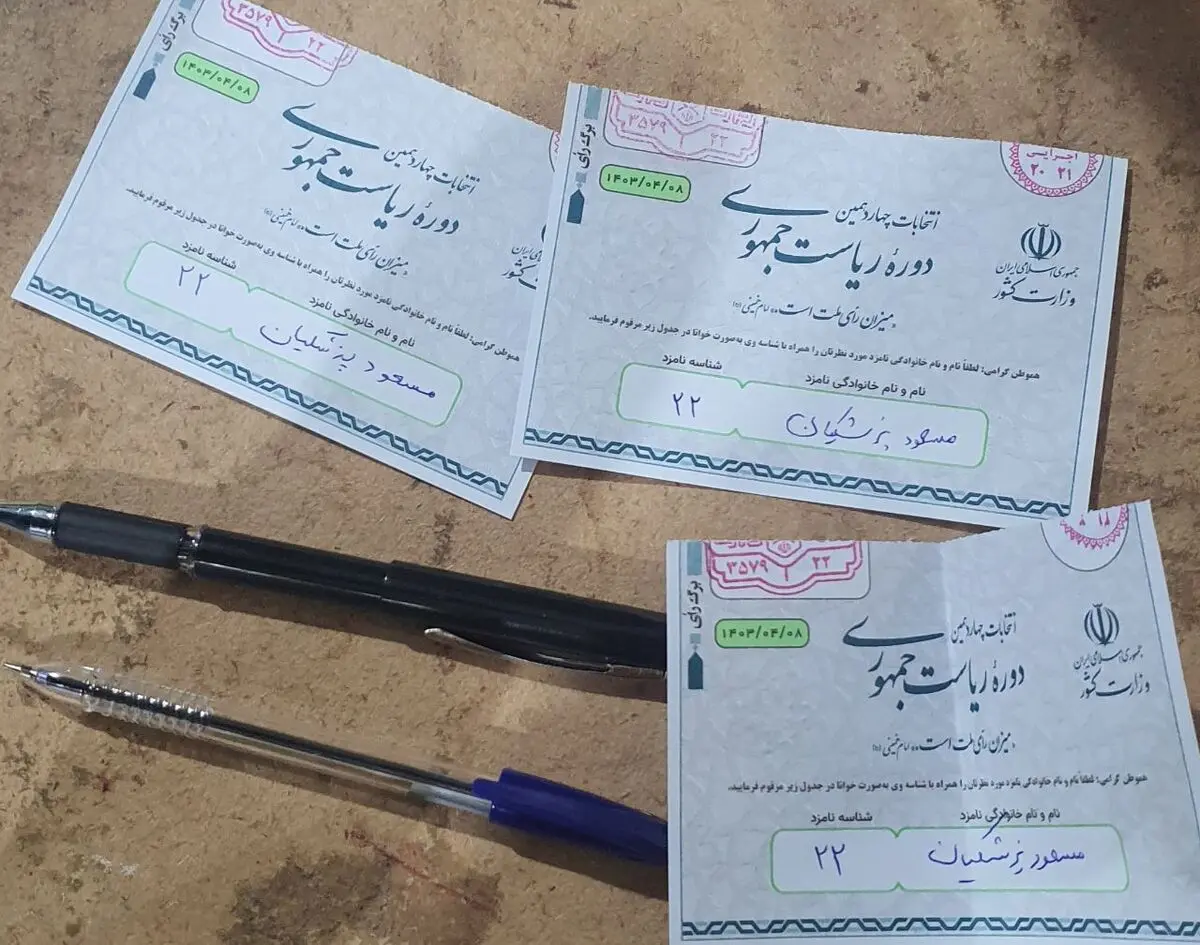 برگ رأی
۳۵۷۹ ۱ ۲۲
۱۴۰۳/۰۴/۰۸
انتخابات چهاردهمین
دورهٔ ریاست جمهوری
«میزان رأی ملت است» امام خمینی (ره)
هموطن گرامی: لطفاً نام و نام خانوادگی نامزد مورد نظرتان را همراه با شناسه وی به‌صورت خوانا در جدول زیر مرقوم فرمایید.
نام و نام خانوادگی نامزد
شناسه نامزد
مسعود پزشکیان
۲۲
برگ رأی
۳۵۷۹ ۱ ۲۲
اجرایی
۲۰ ۲۱
۱۴۰۳/۰۴/۰۸
انتخابات چهاردهمین
دورهٔ ریاست جمهوری
جمهوری اسلامی ایران
وزارت کشور
«میزان رأی ملت است» امام خمینی (ره)
هموطن گرامی: لطفاً نام و نام خانوادگی نامزد مورد نظرتان را همراه با شناسه وی به‌صورت خوانا در جدول زیر مرقوم فرمایید.
نام و نام خانوادگی نامزد
شناسه نامزد
مسعود پزشکیان
۲۲
برگ رأی
۳۵۷۹ ۱ ۲۲
۱۴۰۳/۰۴/۰۸
انتخابات چهاردهمین
دورهٔ ریاست جمهوری
جمهوری اسلامی ایران
وزارت کشور
«میزان رأی ملت است» امام خمینی (ره)
هموطن گرامی: لطفاً نام و نام خانوادگی نامزد مورد نظرتان را همراه با شناسه وی به‌صورت خوانا در جدول زیر مرقوم فرمایید.
نام و نام خانوادگی نامزد
شناسه نامزد
مسعود پزشکیان
۲۲